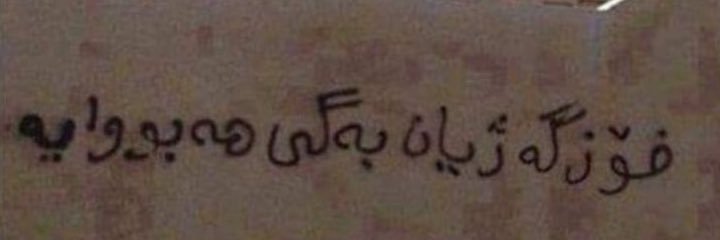 خۆزگە ژیان بەگی هەبووایە